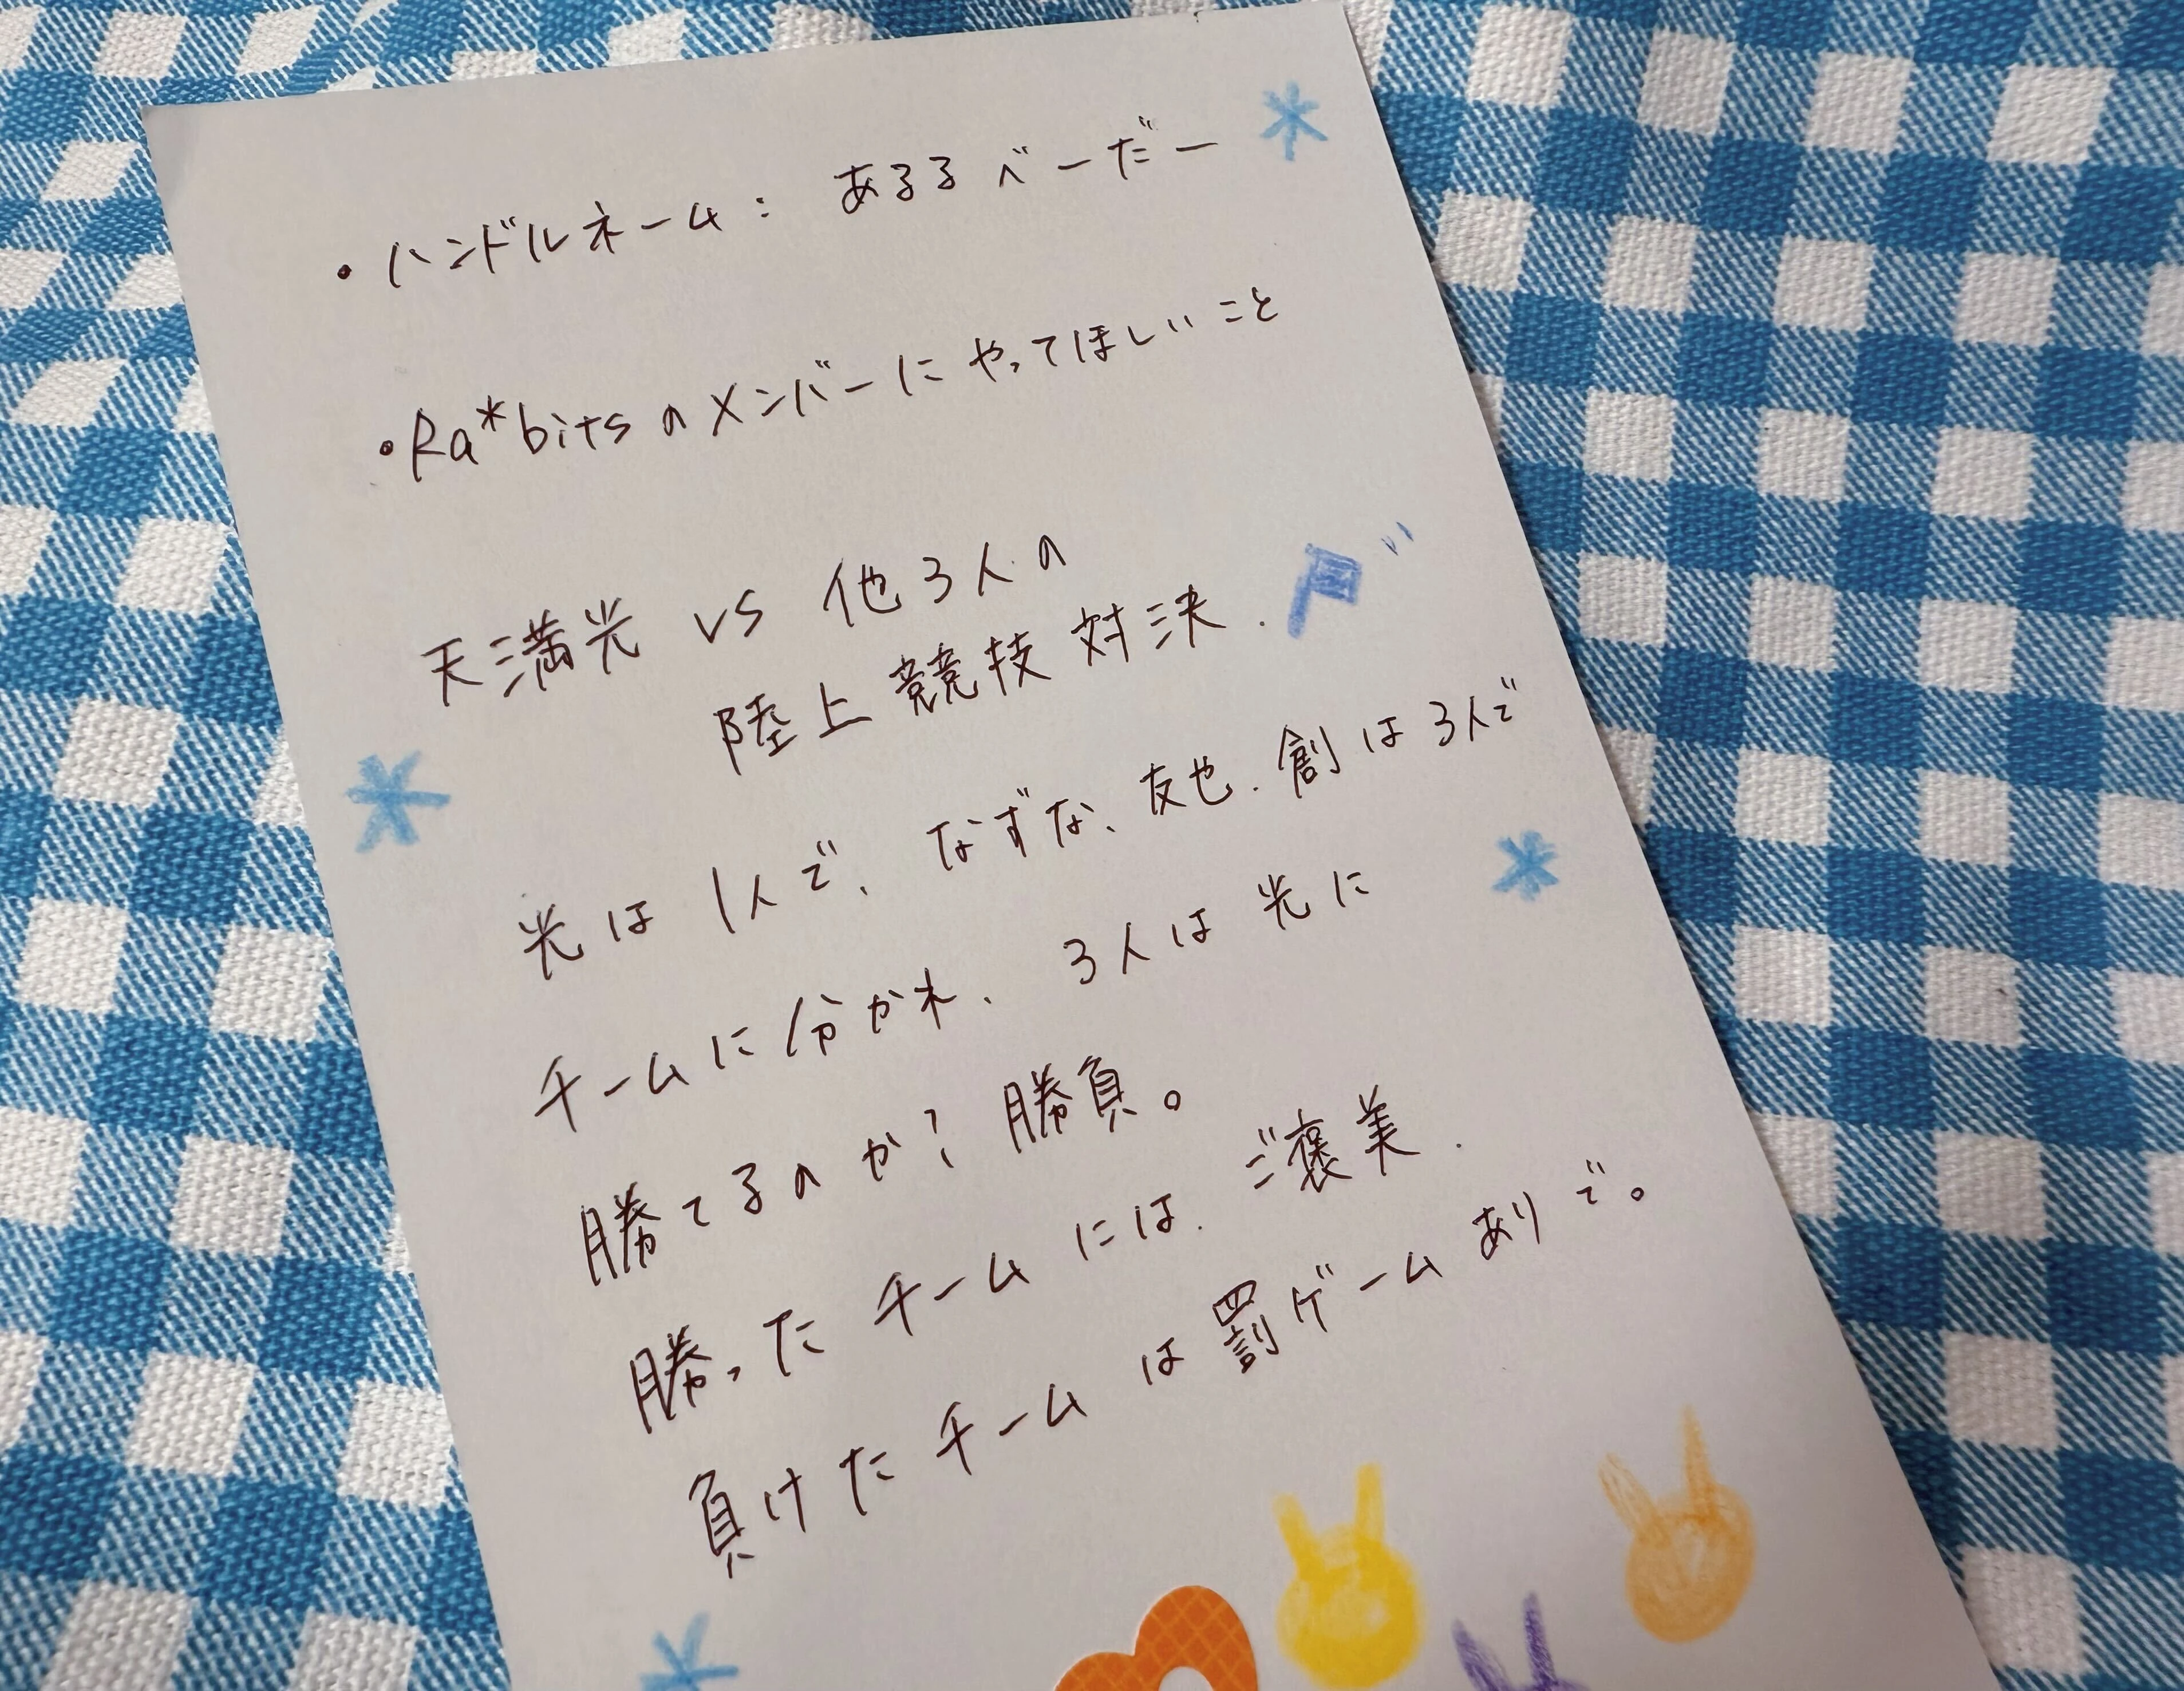 ・ハンドルネーム: あるるべーだー
・Ra*bitsのメンバーにやってほしいこと
天満光 vs 他3人の
陸上競技対決.
光は1人で、なずな、友也、創は3人で
チームに分かれ、3人は光に
勝てるのか?勝負。
勝ったチームには、ご褒美.
負けたチームは罰ゲームありで。